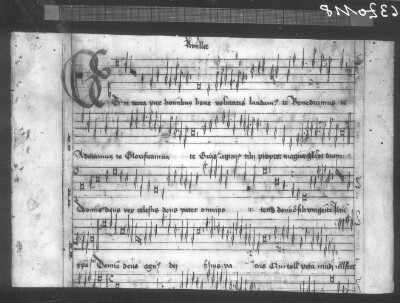 Et in terra pax hominibus bone voluntatis laudamus te Benedicimus te
Adoramus te Glorificamus te Gracias agimus tibi propter magnam gloriam tuam
Domine deus rex celestis deus pater omnipo tens domine fili unigenite Jhesu
xpe Domine deus agnus dei filius pa tris Qui tollis peccata mundi miserere